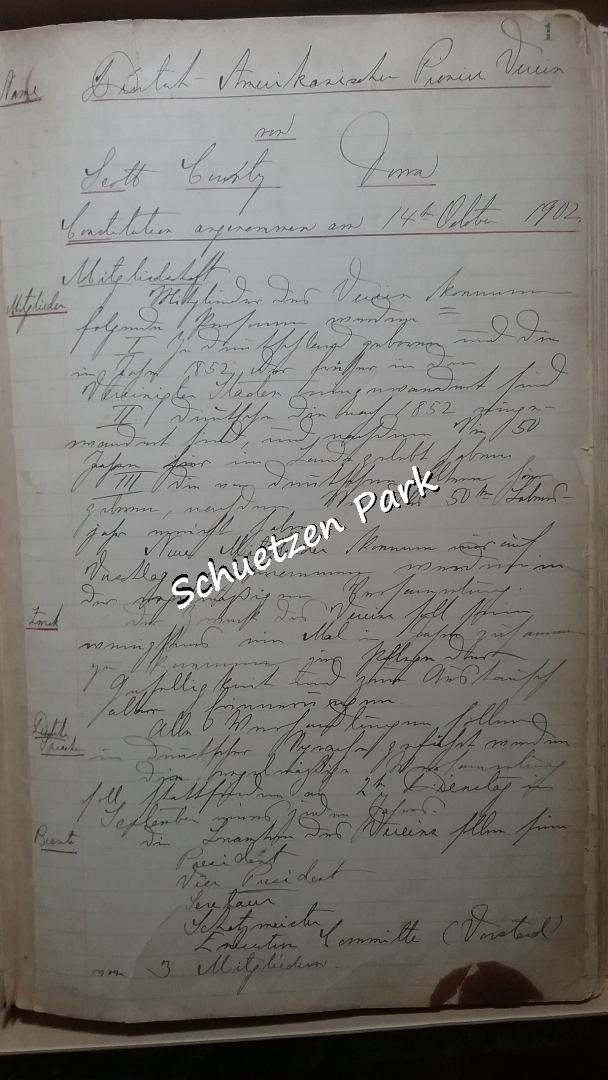 Name
Deutsch-Amerikanischer Pionier Verein
von
Scott County Iowa
Constitution angenommen am 14th October 1902.
Mitgliedschaft
Mitglieder
Mitglieder des Verein können
folgende Personen werden =
I In Deutschland geboren und die
im Jahr 1852 oder früher in den
Vereinigten Staaten eingewandert sind
II Deutsche die nach 1852 einge-
wandert sind und nachdem Sie 50
Jahre hier im Lande gelebt haben
III Die von deutschen Eltern hier
geboren, nachdem 50th Lebens-
jahr erreicht haben
Neue Mitglieder können nur auf
Vorschlag werden in
der regelmäßigen Versammlung.
Zweck
Der Zweck des Vereins soll sein
wenigstens ein Mal im Jahre zusammen
zu kommen zur Pflege deutscher
Geselligkeit und zum Austausch
alter Erinnerungen
Deutsche
Sprache
Alle Verhandlungen sollen
in deutscher Sprache geführt werden
Die regelmäßige Versammlung
soll stattfinden am 2ten Dienstag im
September eines jeden Jahres.
Beamte
Die Beamten des Vereins sollen sein
President
Vice President
Secretair
Schatzmeister
Executive Committe (Vorstand)
von 3 Mitgliedern.
Schuetzen Park